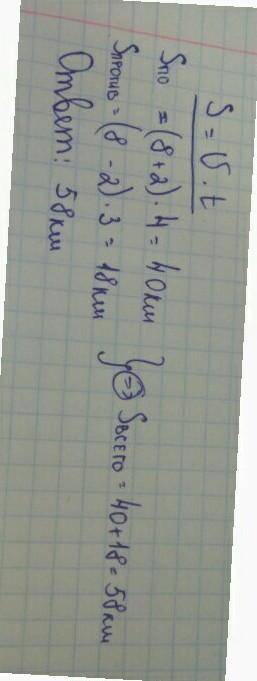 S = υ · t
Sпо = (8+2) · 4 = 40 км
Sпротив = (8 - 2) · 3 = 18 км
} ⇒ Sвсего = 40+18 = 58 км
Ответ: 58 км